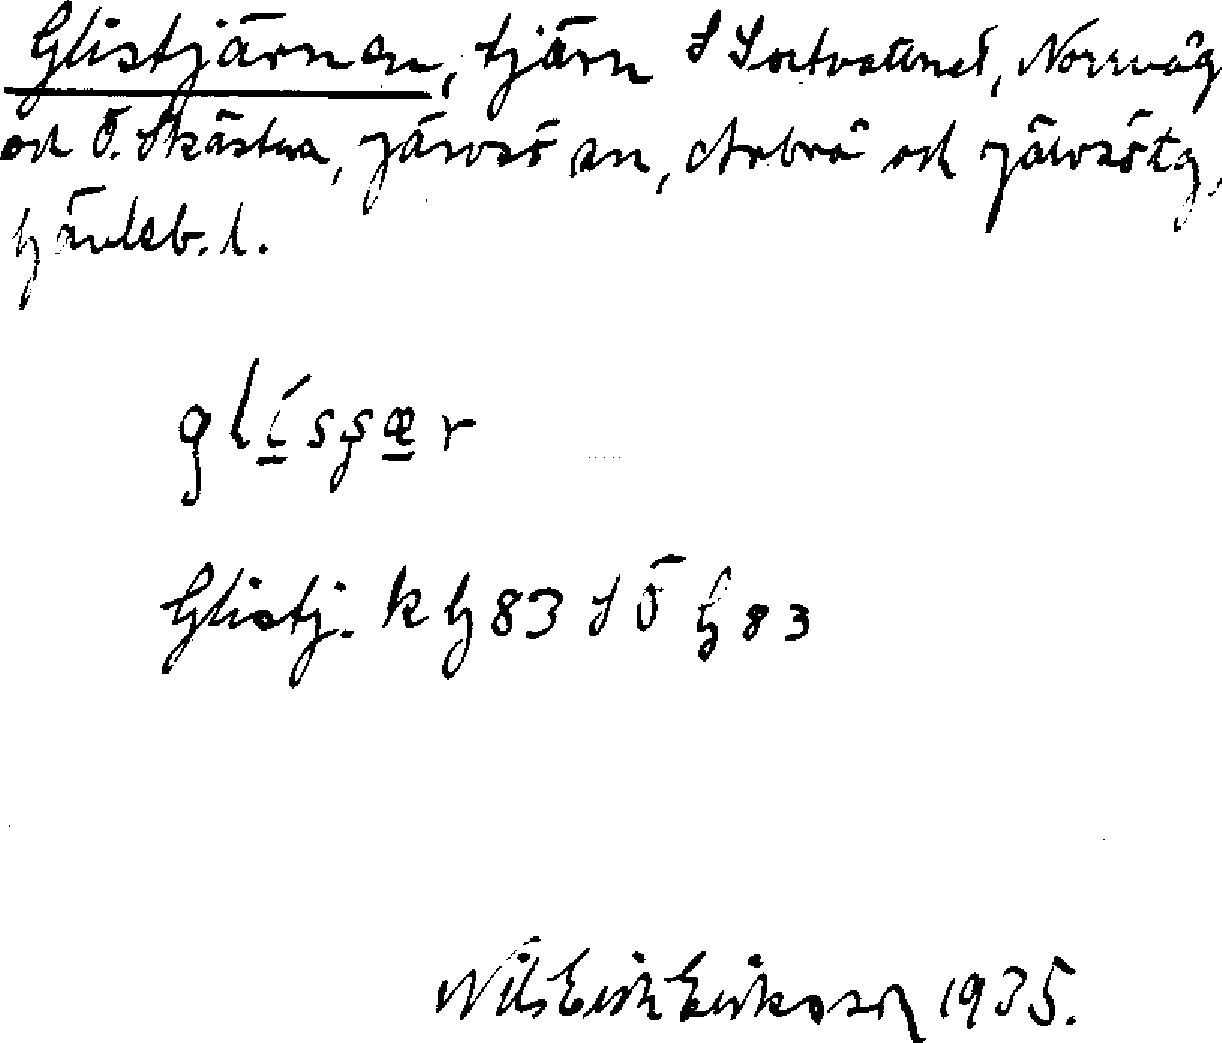 Glistjärnen, tjärn S Sortvattnet, Norrvåg
och Ö. Skästra, Järvsö sn, Arbrå och Järvsö tg,
Gävleb. l.
glísşær
Glistj. k G 83 S Ö G 83
Nils Erik Eriksson 1935.